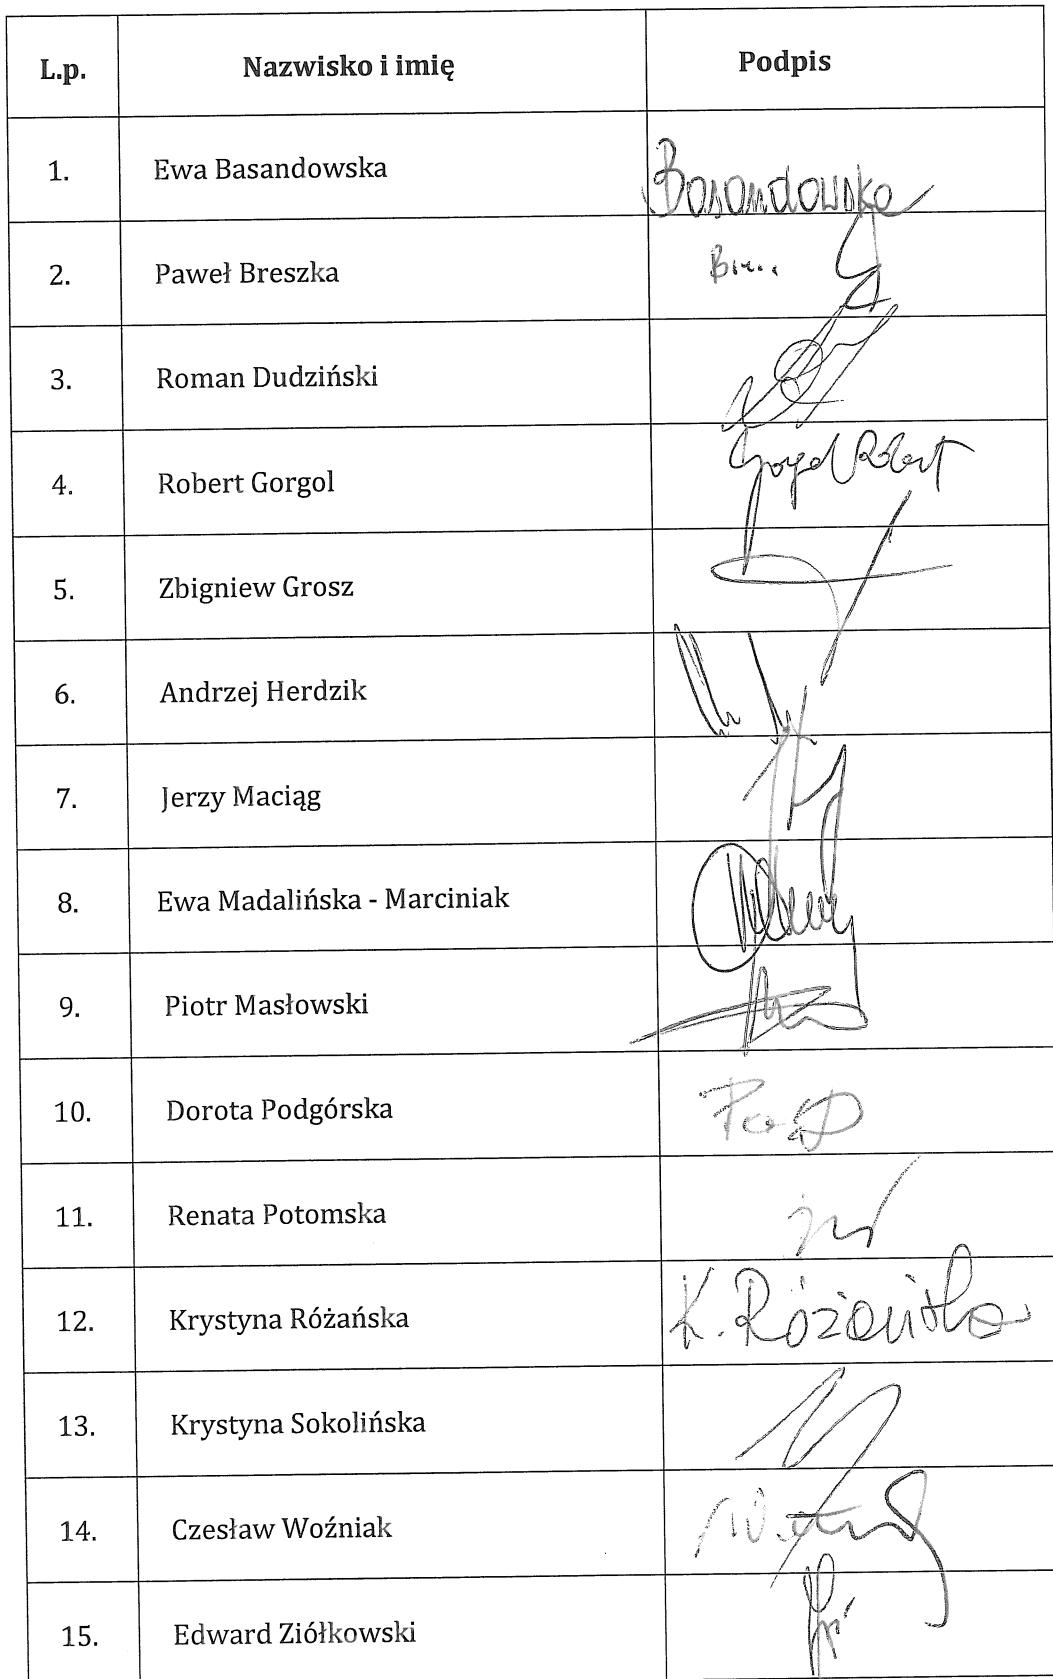 L.p. Nazwisko i imię Podpis
1. Ewa Basandowska Basandowska
2. Paweł Breszka
3. Roman Dudziński
4. Robert Gorgol Gorgol Robert
5. Zbigniew Grosz
6. Andrzej Herdzik
7. Jerzy Maciąg
8. Ewa Madalińska - Marciniak
9. Piotr Masłowski
10. Dorota Podgórska
11. Renata Potomska
12. Krystyna Różańska K. Różańska
13. Krystyna Sokolińska
14. Czesław Woźniak
15. Edward Ziółkowski